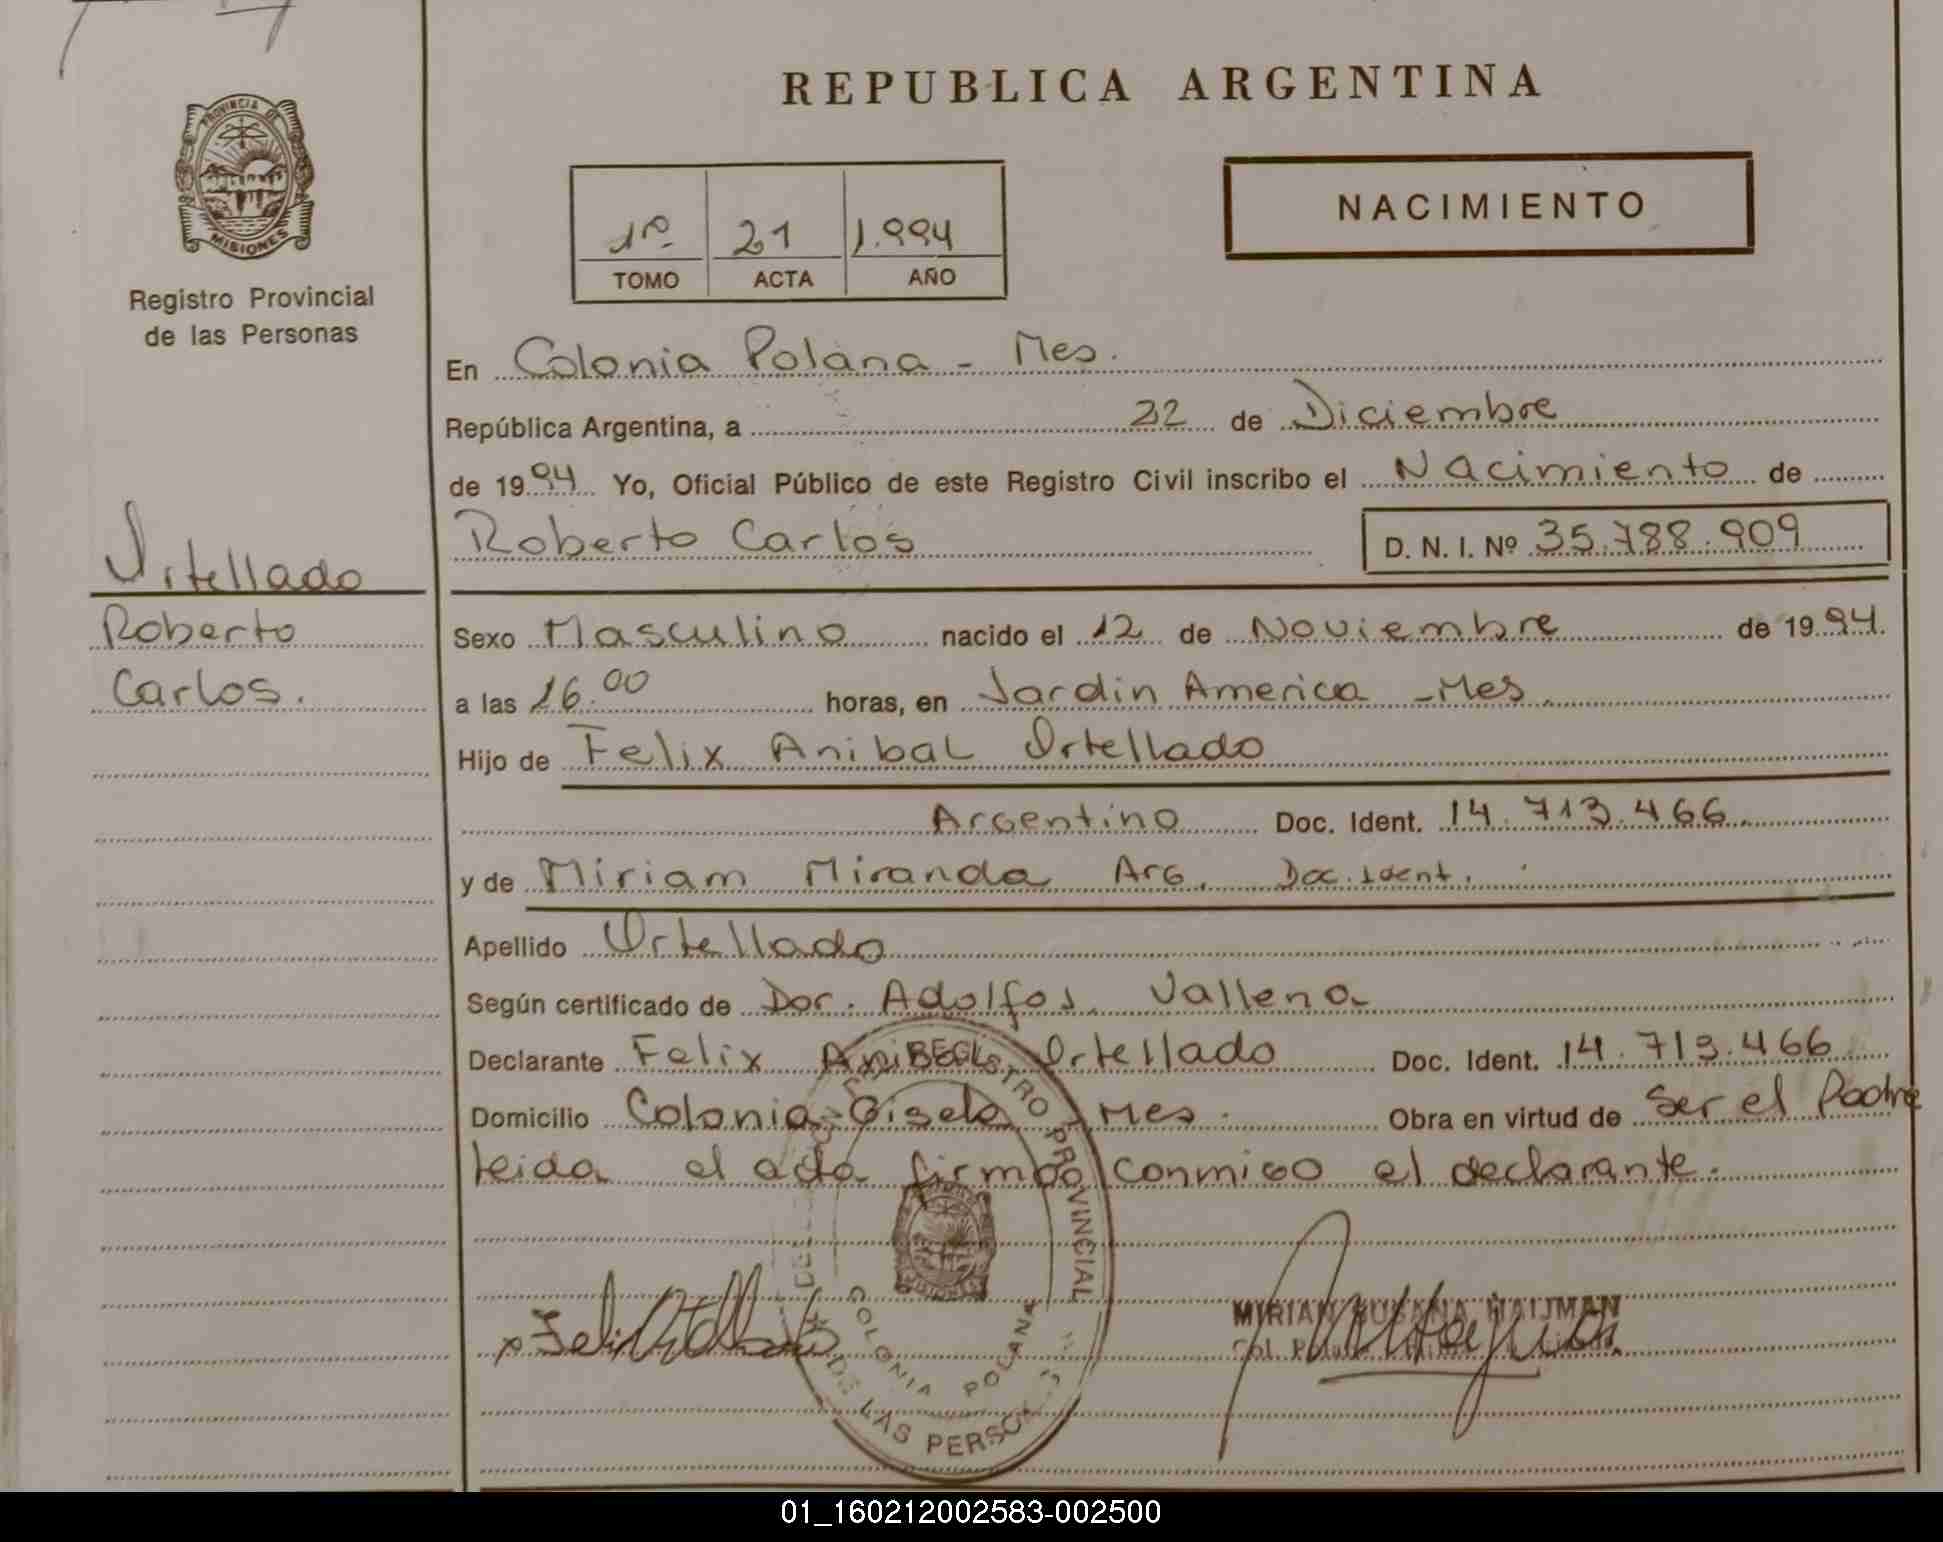 PROVINCIA DE
MISIONES
Registro Provincial
de las Personas
Ortellado
Roberto
Carlos.
REPUBLICA ARGENTINA
1º 21 1.994
TOMO ACTA AÑO
NACIMIENTO
En Colonia Polana - Mes.
República Argentina, a 22 de Diciembre
de 1994 Yo, Oficial Público de este Registro Civil inscribo el Nacimiento de
Roberto Carlos D. N. I. Nº 35.788.909
Sexo Masculino nacido el 12 de Noviembre de 1994.
a las 16.00 horas, en Jardin America - Mes.
Hijo de Felix Anibal Ortellado
Argentino Doc. Ident. 14.713.466
y de Miriam Miranda Arg. Doc. Ident.
Apellido Ortellado
Según certificado de Dor. Adolfo J. Vallena
Declarante Felix Anibal Ortellado Doc. Ident. 14.713.466
Domicilio Colonia Gisela Mes. Obra en virtud de Ser el Padre
leida el acta firma conmigo el declarante.
REGISTRO PROVINCIAL
DE LAS PERSO
COLONIA POLANA
MIRIAN SUSANA HAIJMAN
01_160212002583-002500